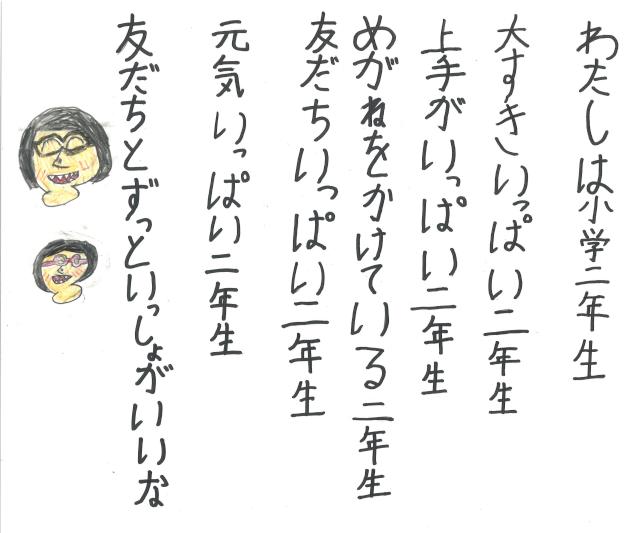 わたしは小学二年生
大すきいっぱい二年生
上手がいっぱい二年生
めがねをかけている二年生
友だちいっぱい二年生
元気いっぱい二年生
友だちとずっといっしょがいいな